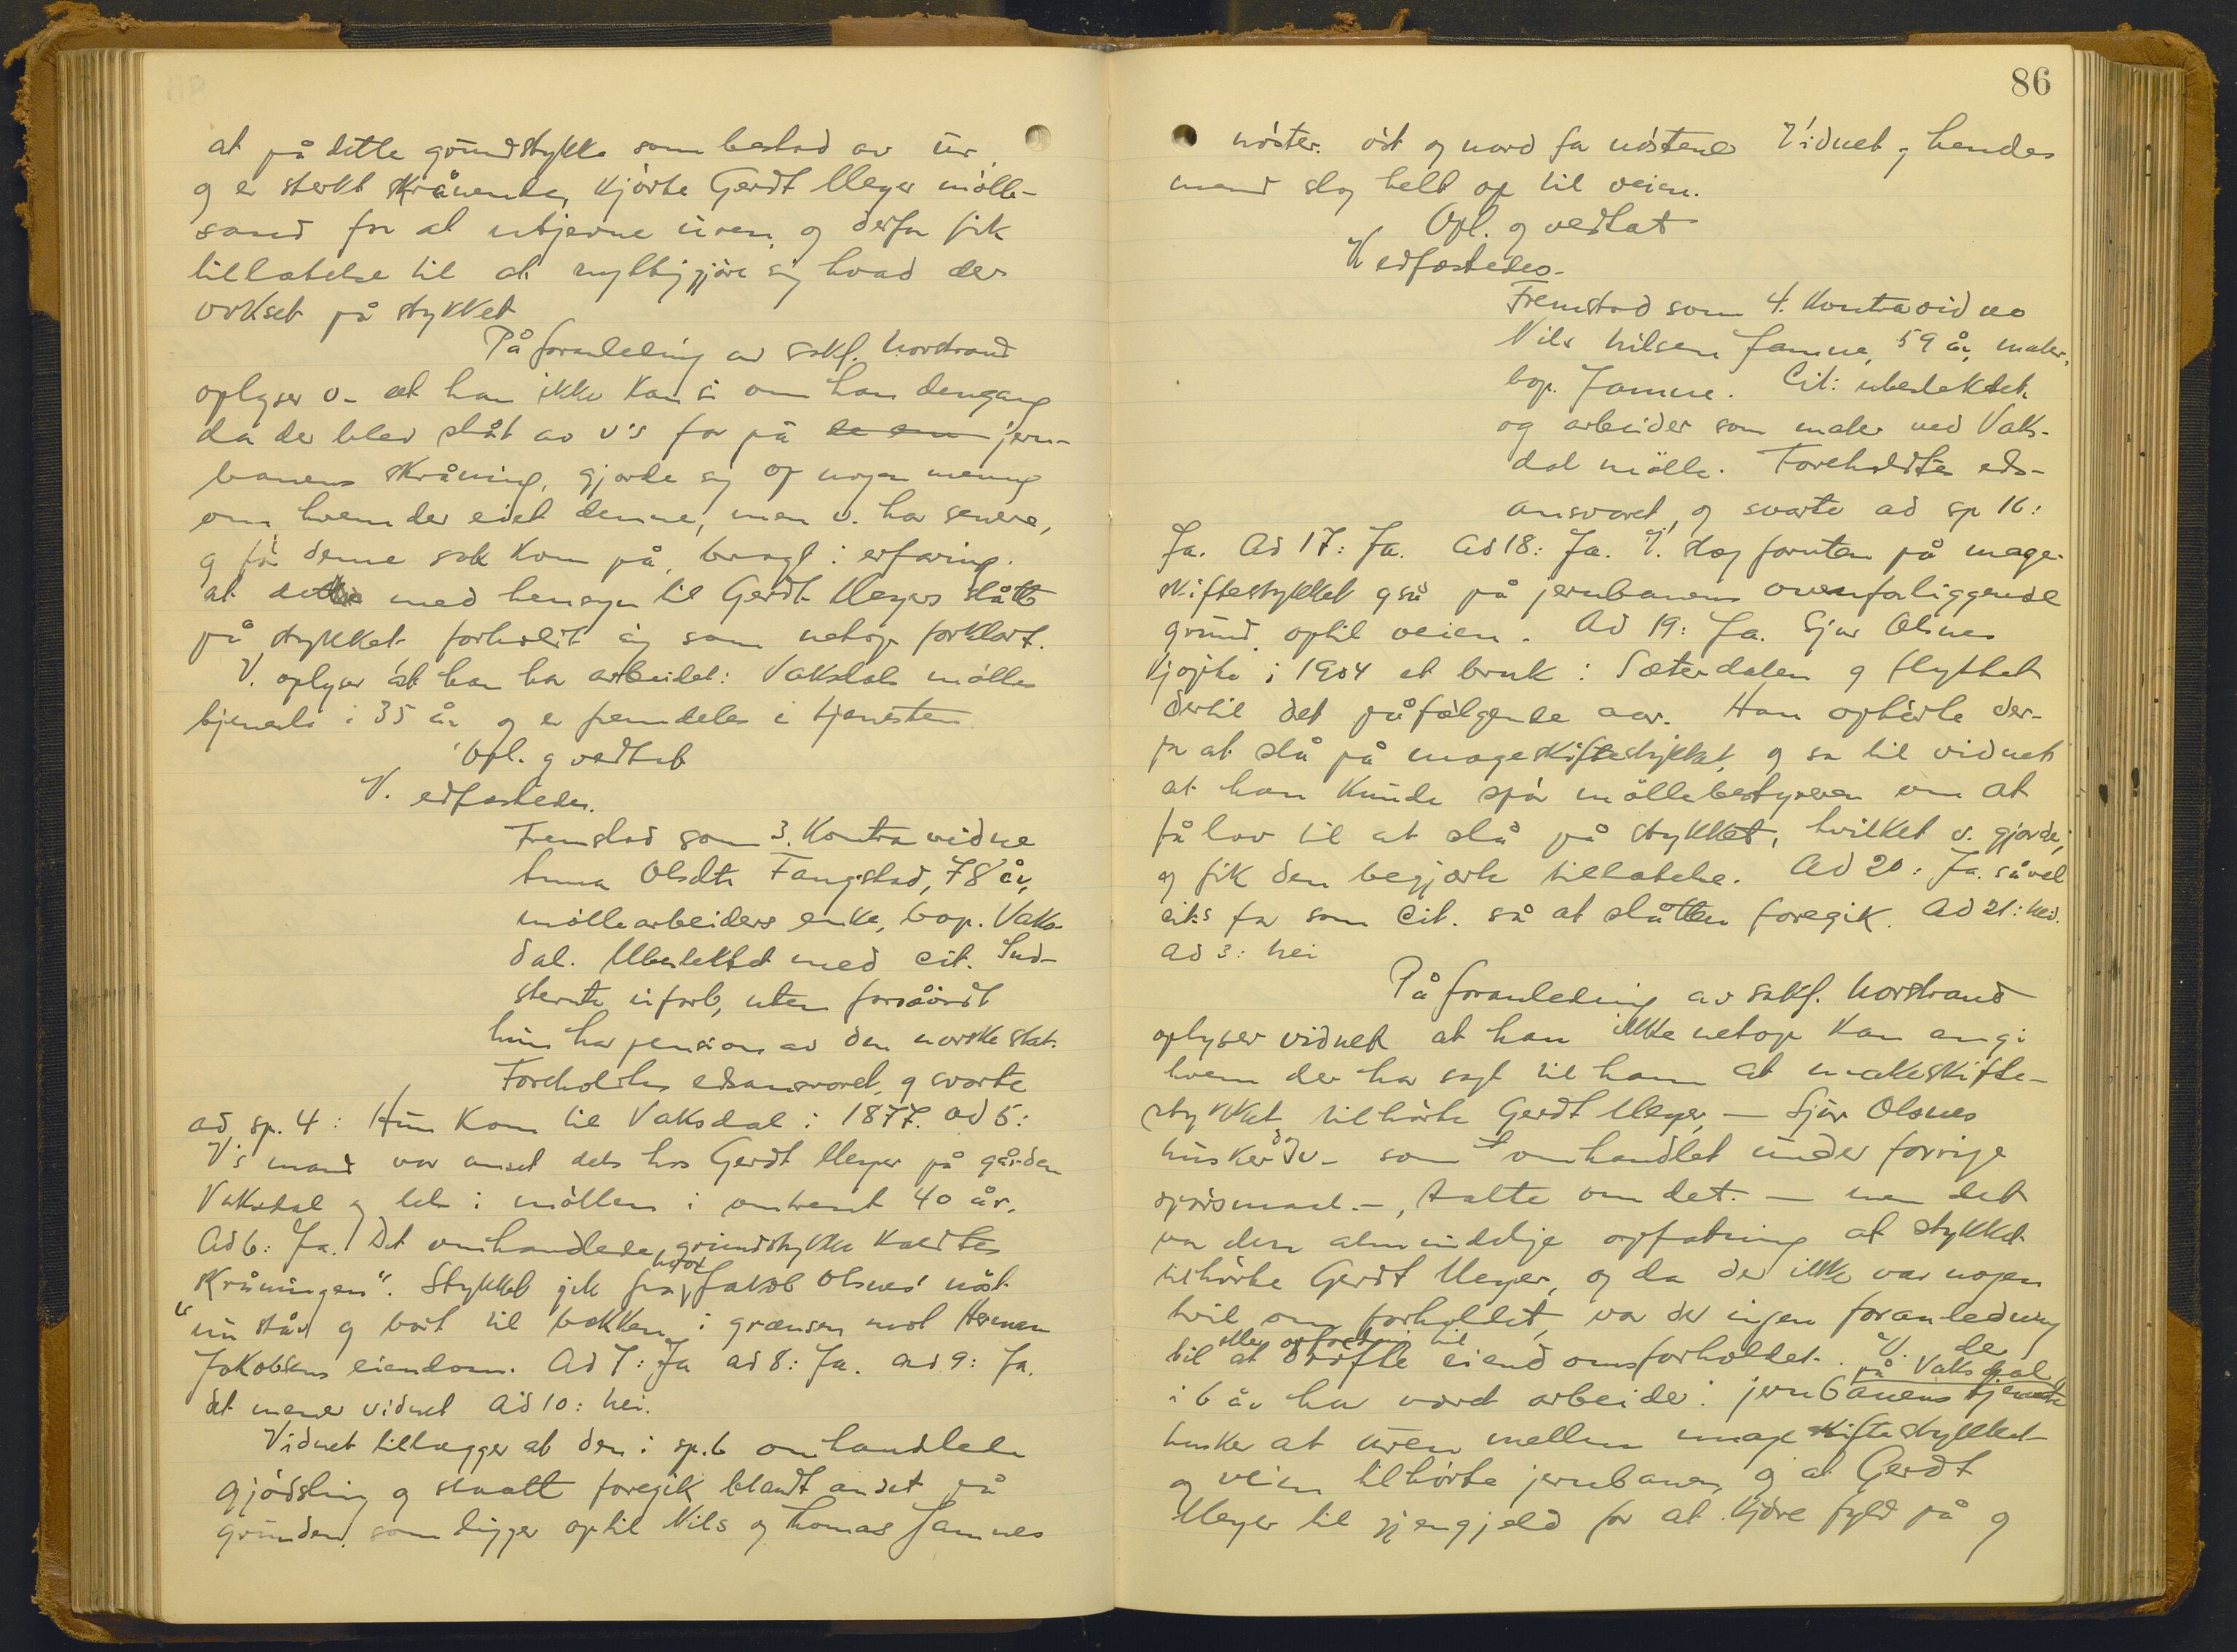 at på dette grundstykke som bestod av ur
og er sterkt skrånende, kjørte Gerdt Meyer mölle-
sand for at utjevne uren og derfor fik
tillatelse til at nyttiggjöre sig hvad der
vokset på stykket
På foranledning av sakf. Nordrand
oplyser v. at han ikke kan si om han dengang
da der blev slåt av v's far på jern-
banens skråning, gjorde sig op nogen mening
om hvem der eiet denne, men v. har senere,
og før denne sak kom på, bragt i erfaring
at dette med hensyn til Gerdt Meyers slåtte
på stykket forholdt sig som netop forklart.
V. oplyser at han har arbeidet i Vaksdals mölles
tjeneste i 35 år og er fremdeles i tjenesten
Opl. og vedtat
V. edfæstedes.
Fremstod som 3. Kontravidne
Anna Olsdtr Fangstad, 78 år,
möllearbeiders enke, bop. Vaks-
dal. Ubeslektet med cit. Ind-
stevnte uforb, uten forsåvidt
hun har pension av den norske stat.
Foreholdtes edsansvaret og svarte
ad sp. 4: Hun kom til Vaksdal i 1877. ad 5:
V's mand var ansat dels hos Gerdt Meyer på gården
Vaksdal og dels i möllen i omtrent 40 år.
Ad 6: Ja. Det omhandlede grundstykke kaldtes
"Skråningen". Stykket gik fra hvor Jakob Olsnes' nöst
nu står og bort til bækken i grænsen mot Herman
Jakobsens eiendom. Ad 7: Ja ad 8: Ja. ad 9: Ja.
det mener vidnet ad 10: Nei.
Vidnet tillægger at den i sp. 6 omhandlede
gjödsling og slaatt foregik blandt andet på
grunden som ligger optil Nils og Thomas Jamnes
86
nöster. öst og nord for nöstene Vidnet og hendes
mand slog helt op til veien.
Opl. og vedtat
V edfæstedes.
Fremstod som 4. Kontravidne
Nils Nilsen Jamne, 59 år, maler,
bop. Jamne. Cit: ubeslektet
og arbeider som maler ved Vaks-
dal mölle. Foreholdtes eds-
ansvaret og svarte ad sp 16:
Ja. Ad 17: Ja. Ad 18: Ja. V. slog foruten på mage-
skiftestykket også på jernbanens ovenforliggende
grund optil veien. Ad 19: Ja. Sjur Olsnes
kjøpte i 1904 et bruk i Sæterdalen og flyttet
dertil det påfølgende aar. Han ophørte der-
for at slå på mageskiftestykket og sa til vidnet
at han kunde spör möllebestyreren om at
få lov til at slå på stykket, hvilket v. gjorde,
og fik den begjærte tillatelse. Ad 20: Ja. såvel
cit:s far som Cit. så at slåtten foregik. Ad 21: Nei.
Ad 3: Nei
På foranledning av sakf. Nordrand
oplyser vidnet at han ikke netop kan angi
hvem der har sagt til ham at makeskifte-
stykket tilhörte Gerdt Meyer, — Sjur Olsnes
husker v. som omhandlet under forrige
spörsmaal -, talte om det. — men det
var den almindelige opfatning at stykket
tilhörte Gerdt Meyer, og da der ikke var nogen
tvil om forholdet, var der ingen foranledning
eller opfordring til
til at dröfte eiendomsforholdet. V. der
på Vaksdal
i 6 år har været arbeider i jernbanens tjeneste
husker at uren mellem mageskiftestykket
og veien tilhörte jernbanen og at Gerdt
Meyer til gjengjeld for at kjöre fyld på og